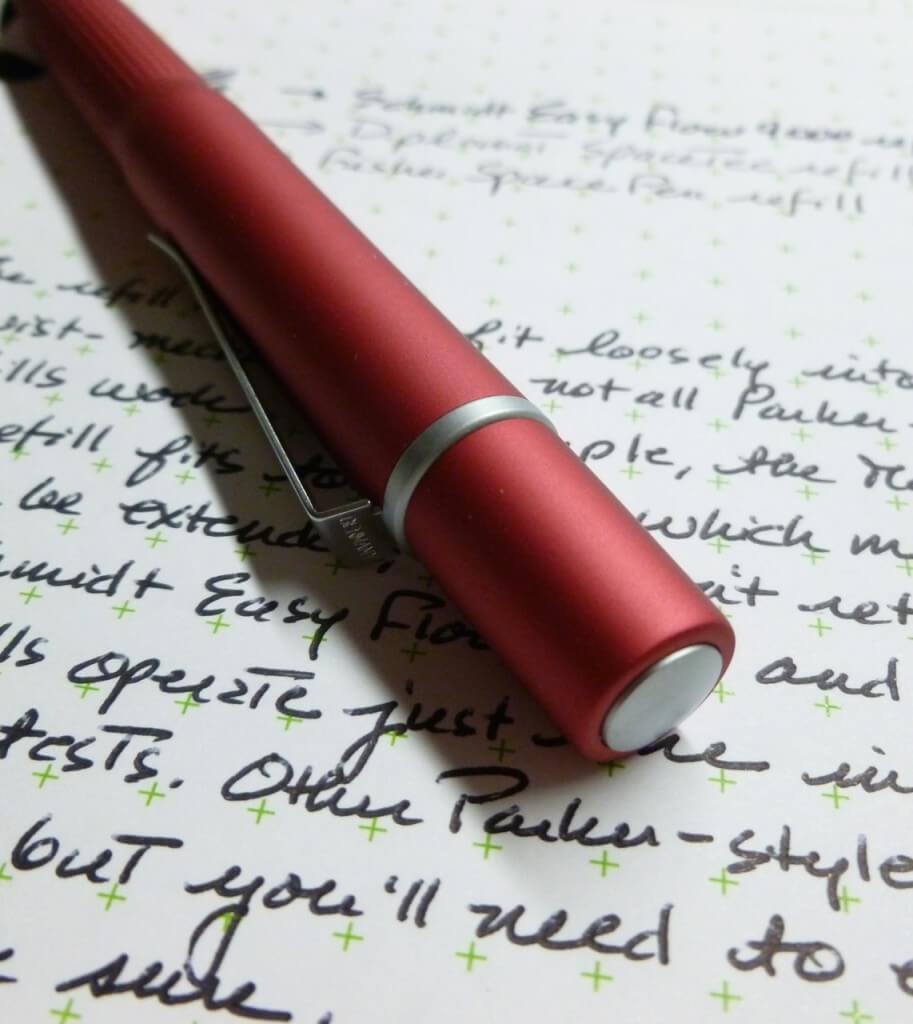 → Schmidt Easy Flow 9000
→ Diplomat Spacetec refill
Fisher Space Pen refill
refill, fit loosely into
not all Parker-
lls work
refill fits ple, the re
be extende which m
hmidt Easy Flow it ret
lls operate just and
tests. in
Other Parker-style
but you'll need to e
sure.
GERMANY